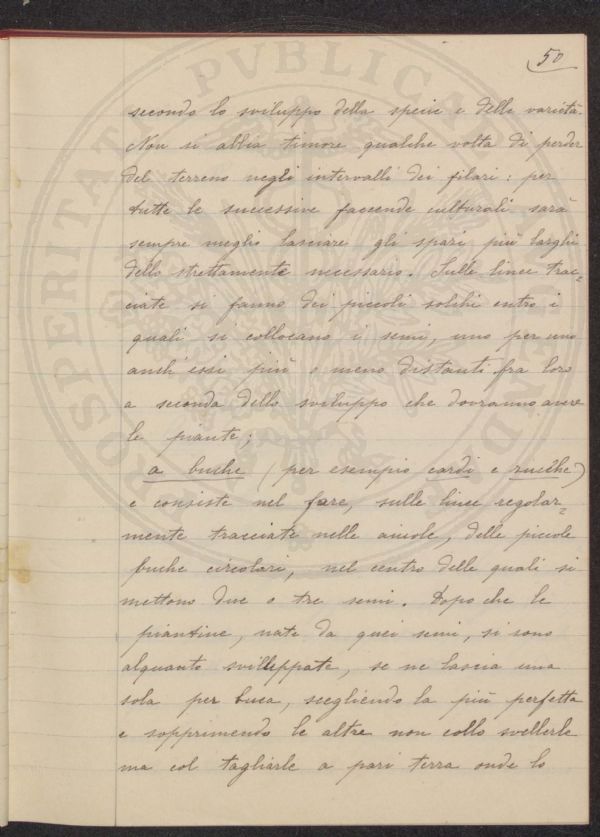 50
secondo lo sviluppo della specie e delle varietà.
Non si abbia timore qualche volta di perder
del terreno negli intervalli dei filari: per
tutte le successive faccende culturali sarà
sempre meglio lasciare gli spazi più larghi
dello strettamente necessario. Sulle linee trac=
ciate si fanno dei piccoli solchi entro i
quali si collocano i semi, uno per uno
anch'essi più o meno distanti fra loro
a seconda dello sviluppo che dovranno avere
le piante;
a buche (per esempio cardi e zucche)
e consiste nel fare, sulle linee regolar=
mente tracciate nelle aiuole, delle piccole
buche circolari, nel centro delle quali si
mettono due o tre semi. Dopo che le
piantine, nate da quei semi, si sono
alquanto svilluppate, se ne lascia una
sola per buca, scegliendo la più perfetta
e sopprimendo le altre non collo svellerle
ma col tagliarle a pari terra onde lo
PROSPERITATI PVBLICAE AVGENDAE